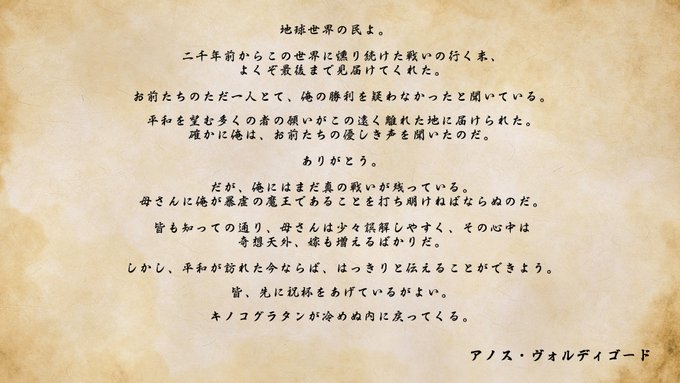 地球世界の民よ。
二千年前からこの世界に燻り続けた戦いの行く末、
よくぞ最後まで見届けてくれた。
お前たちのただ一人とて、俺の勝利を疑わなかったと聞いている。
平和を望む多くの者の願いがこの遠く離れた地に届けられた。
確かに俺は、お前たちの優しき声を聞いたのだ。
ありがとう。
だが、俺にはまだ真の戦いが残っている。
母さんに俺が暴虐の魔王であることを打ち明けねばならぬのだ。
皆も知っての通り、母さんは少々誤解しやすく、その心中は
奇想天外、嫁も増えるばかりだ。
しかし、平和が訪れた今ならば、はっきりと伝えることができよう。
皆、先に祝杯をあげているがよい。
キノコグラタンが冷めぬ内に戻ってくる。
アノス・ヴォルディゴード